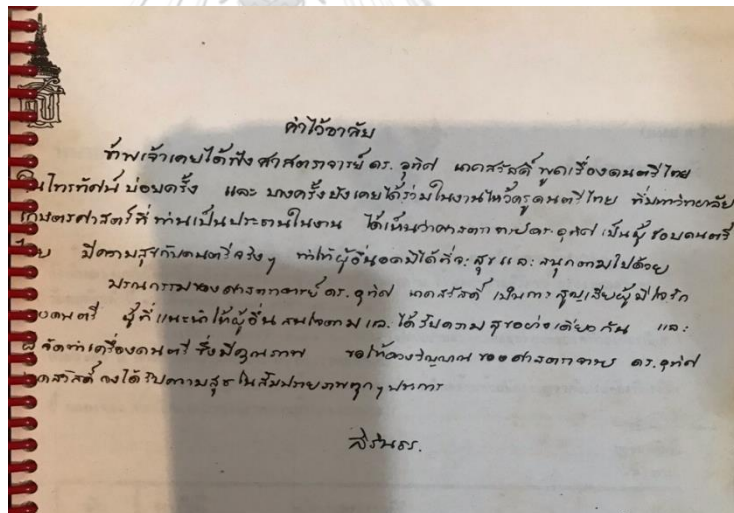 คำไว้อาลัย
ข้าพเจ้าเคยได้ฟังศาสตราจารย์ ดร. อุทิศ นาคสวัสดิ์ พูดเรื่องดนตรีไทย
ในโทรทัศน์บ่อยครั้ง และ บางครั้งยังเคยได้ร่วมในงานไหว้ครูดนตรีไทย ที่มหาวิทยาลัย
เกษตรศาสตร์ที่ท่านเป็นประธานในงาน ได้เห็นว่าศาสตราจารย์ ดร. อุทิศ เป็นผู้ชอบดนตรี
ไทย มีความสุขกับดนตรีจริงๆ ทำให้ผู้อื่นอดมิได้ที่จะสุขและสนุกตามไปด้วย
มรณกรรมของศาสตราจารย์ ดร. อุทิศ นาคสวัสดิ์ เป็นการสูญเสียผู้มีใจรัก
ดนตรี ผู้ที่แนะนำให้ผู้อื่นสนใจตามและได้รับความสุขอย่างเดียวกัน และ
ผู้จัดทำเครื่องดนตรีซึ่งมีคุณภาพ ขอให้ดวงวิญญาณของศาสตราจารย์ ดร. อุทิศ
นาคสวัสดิ์ จงได้รับความสุขในสัมปรายภพทุกๆ ประการ
สิรินธร.